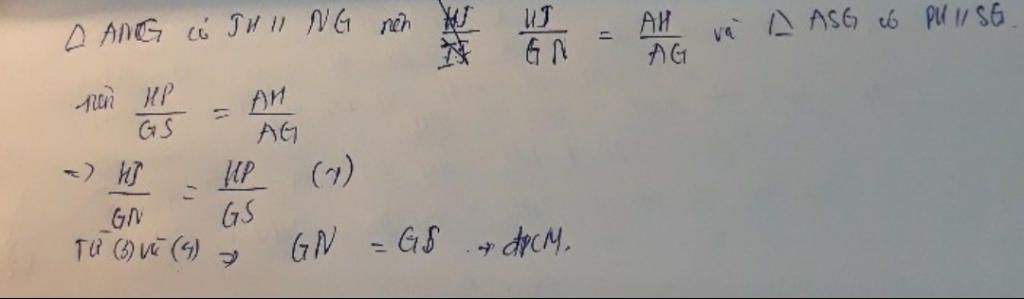 Δ ANG có JH // NG nên HJ/GN = AH/AG và Δ ASG có PH // SG.
nên HP/GS = AH/AG
=> HJ/GN = HP/GS (4)
Từ (3) và (4) => GN = GS → đpcm.